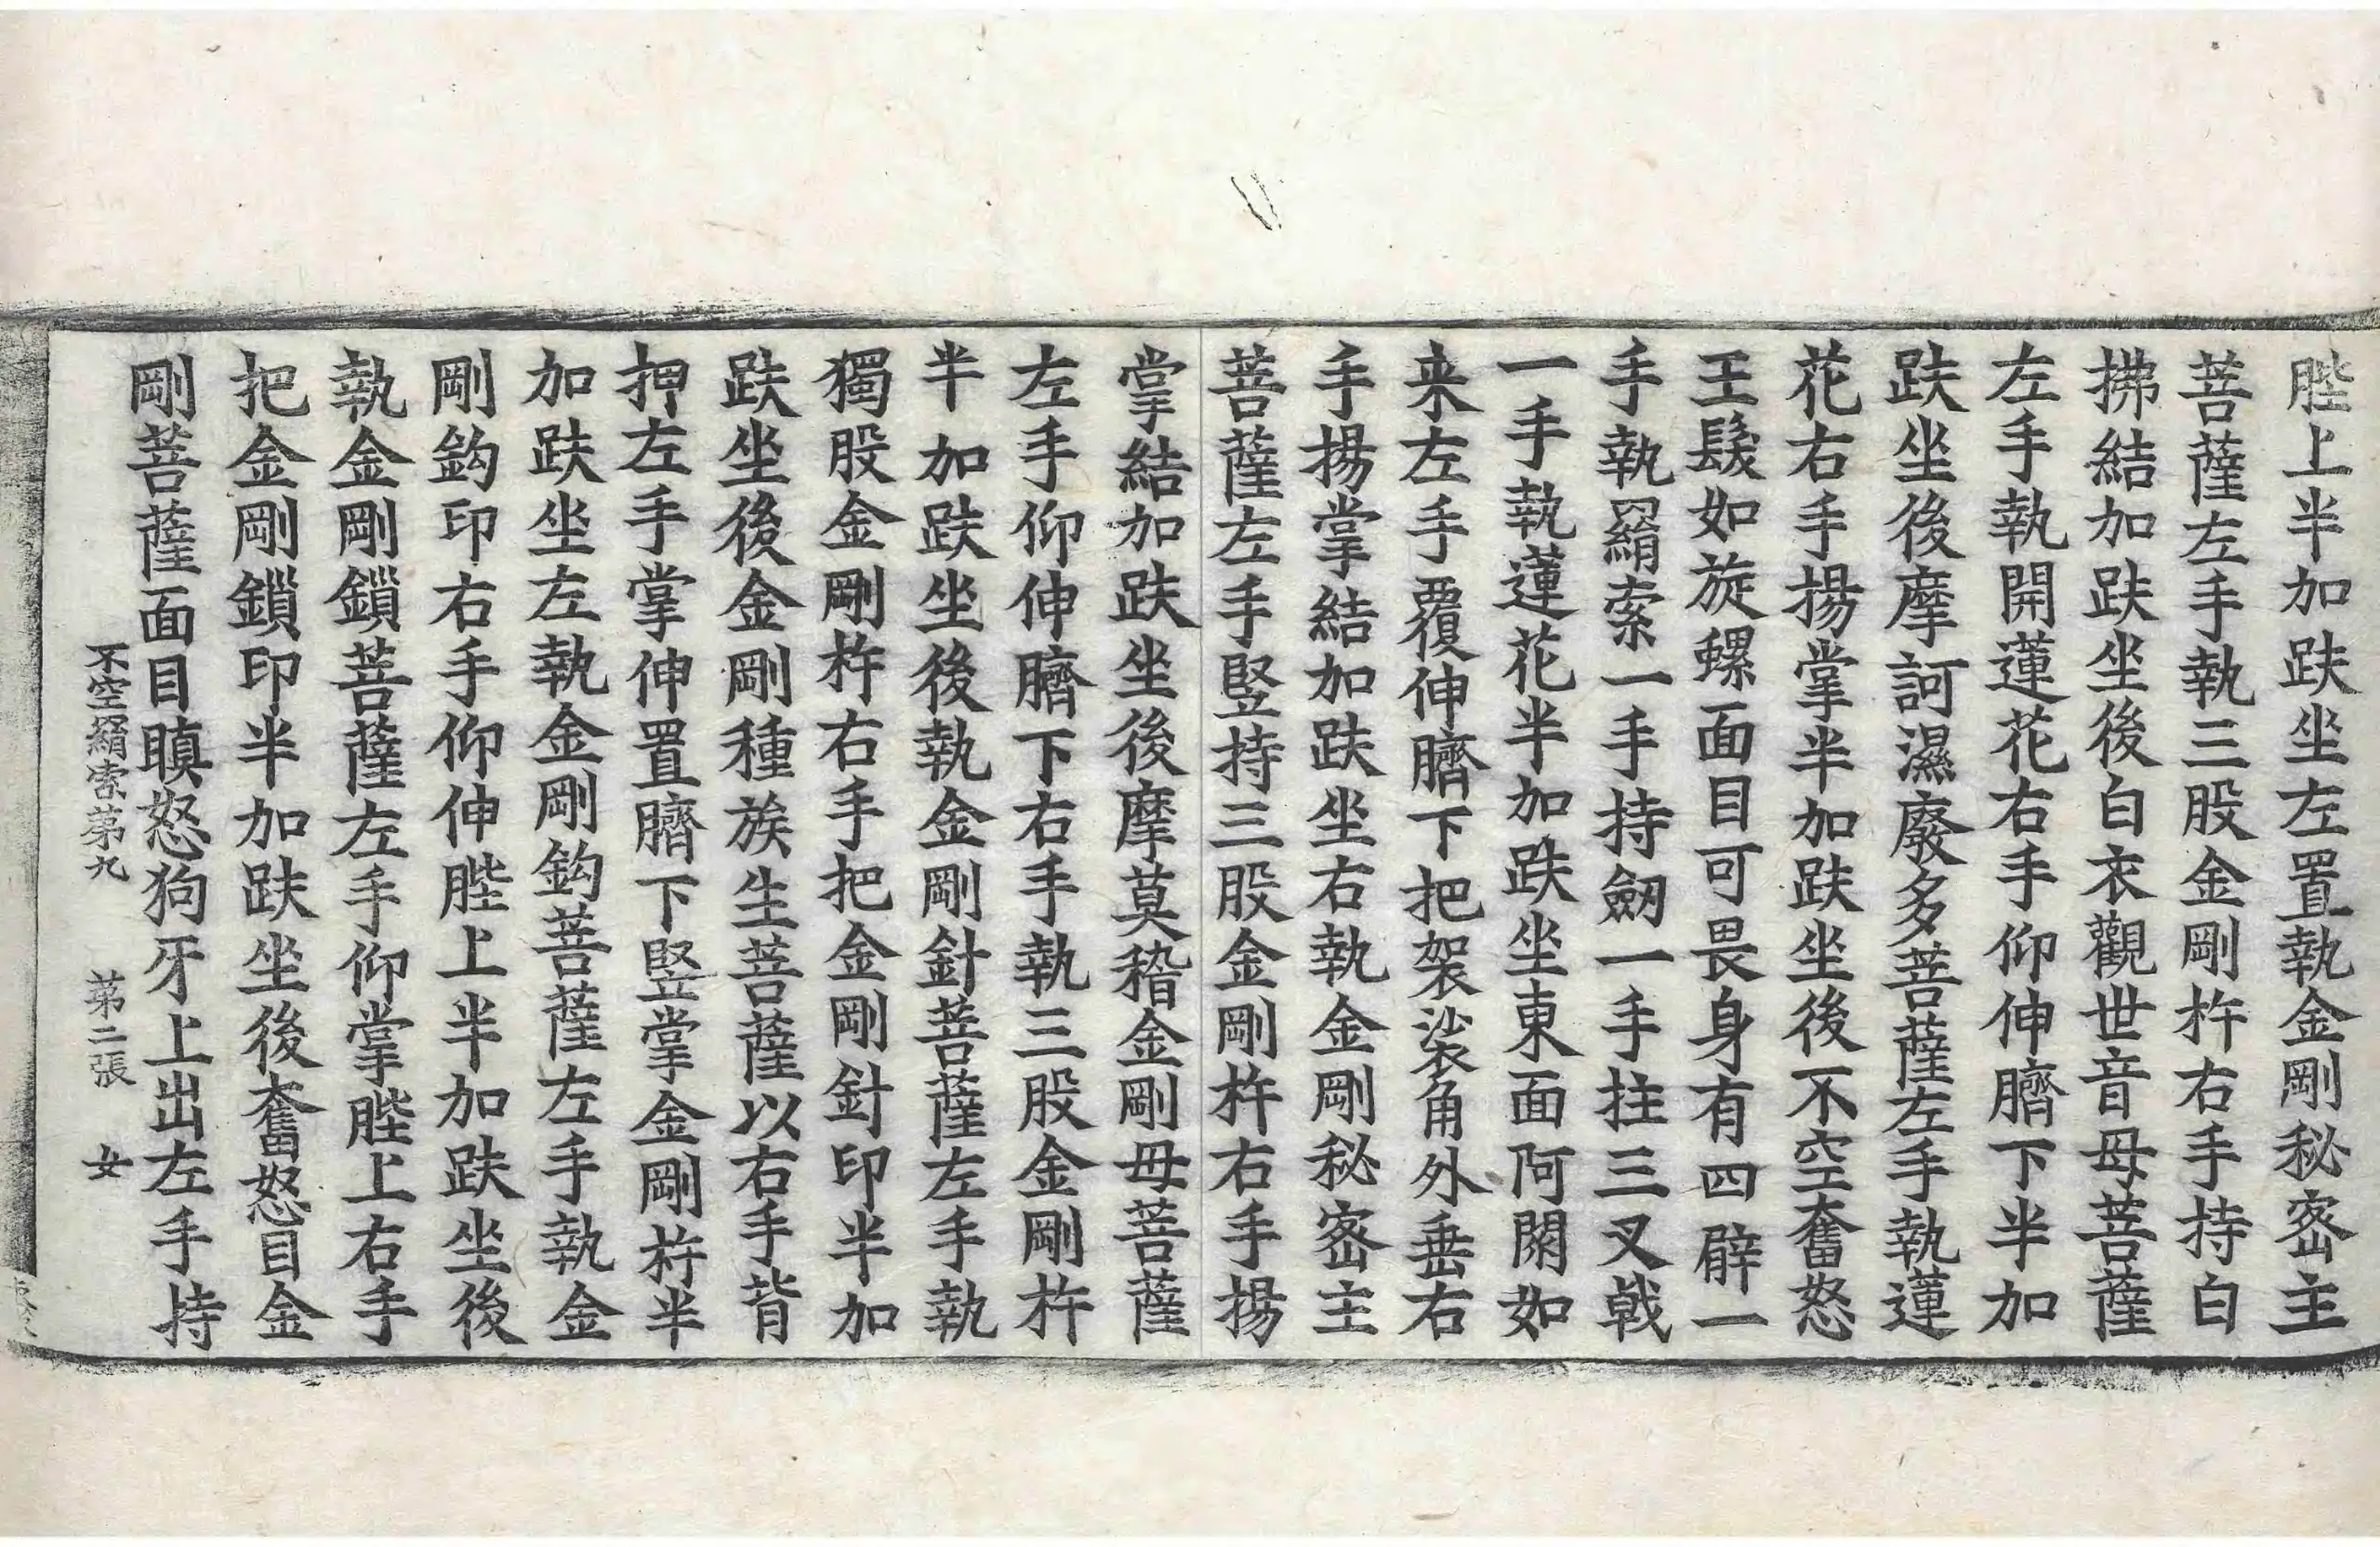 䏶上半加趺坐左置執金剛秘密主
菩薩左手執三股金剛杵右手持白
拂結加趺坐後白衣觀世音母菩薩
左手執開蓮花右手仰伸臍下半加
趺坐後摩訶濕廢多菩薩左手執蓮
花右手揚掌半加趺坐後不空奮怒
王髮如旋螺面目可畏身有四臂一
手執羂索一手持劒一手拄三叉戟
一手執蓮花半加趺坐東面阿閦如
来左手覆伸臍下把袈裟角外垂右
手揚掌結加趺坐右執金剛秘密主
菩薩左手竪持三股金剛杵右手揚
掌結加趺坐後摩莫稽金剛母菩薩
左手仰伸臍下右手執三股金剛杵
半加趺坐後執金剛針菩薩左手執
獨股金剛杵右手把金剛針印半加
趺坐後金剛種族生菩薩以右手背
押左手掌伸置臍下竪掌金剛杵半
加趺坐左執金剛鈎菩薩左手執金
剛鈎印右手仰伸䏶上半加趺坐後
執金剛鎖菩薩左手仰掌䏶上右手
把金剛鎖印半加趺坐後奮怒目金
剛菩薩面目瞋怒狗牙上出左手持
不空羂索苐九 苐二張 女